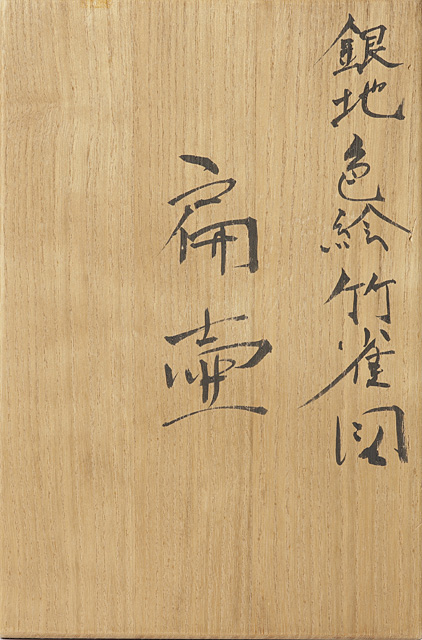 銀地色絵竹雀図
扁壷